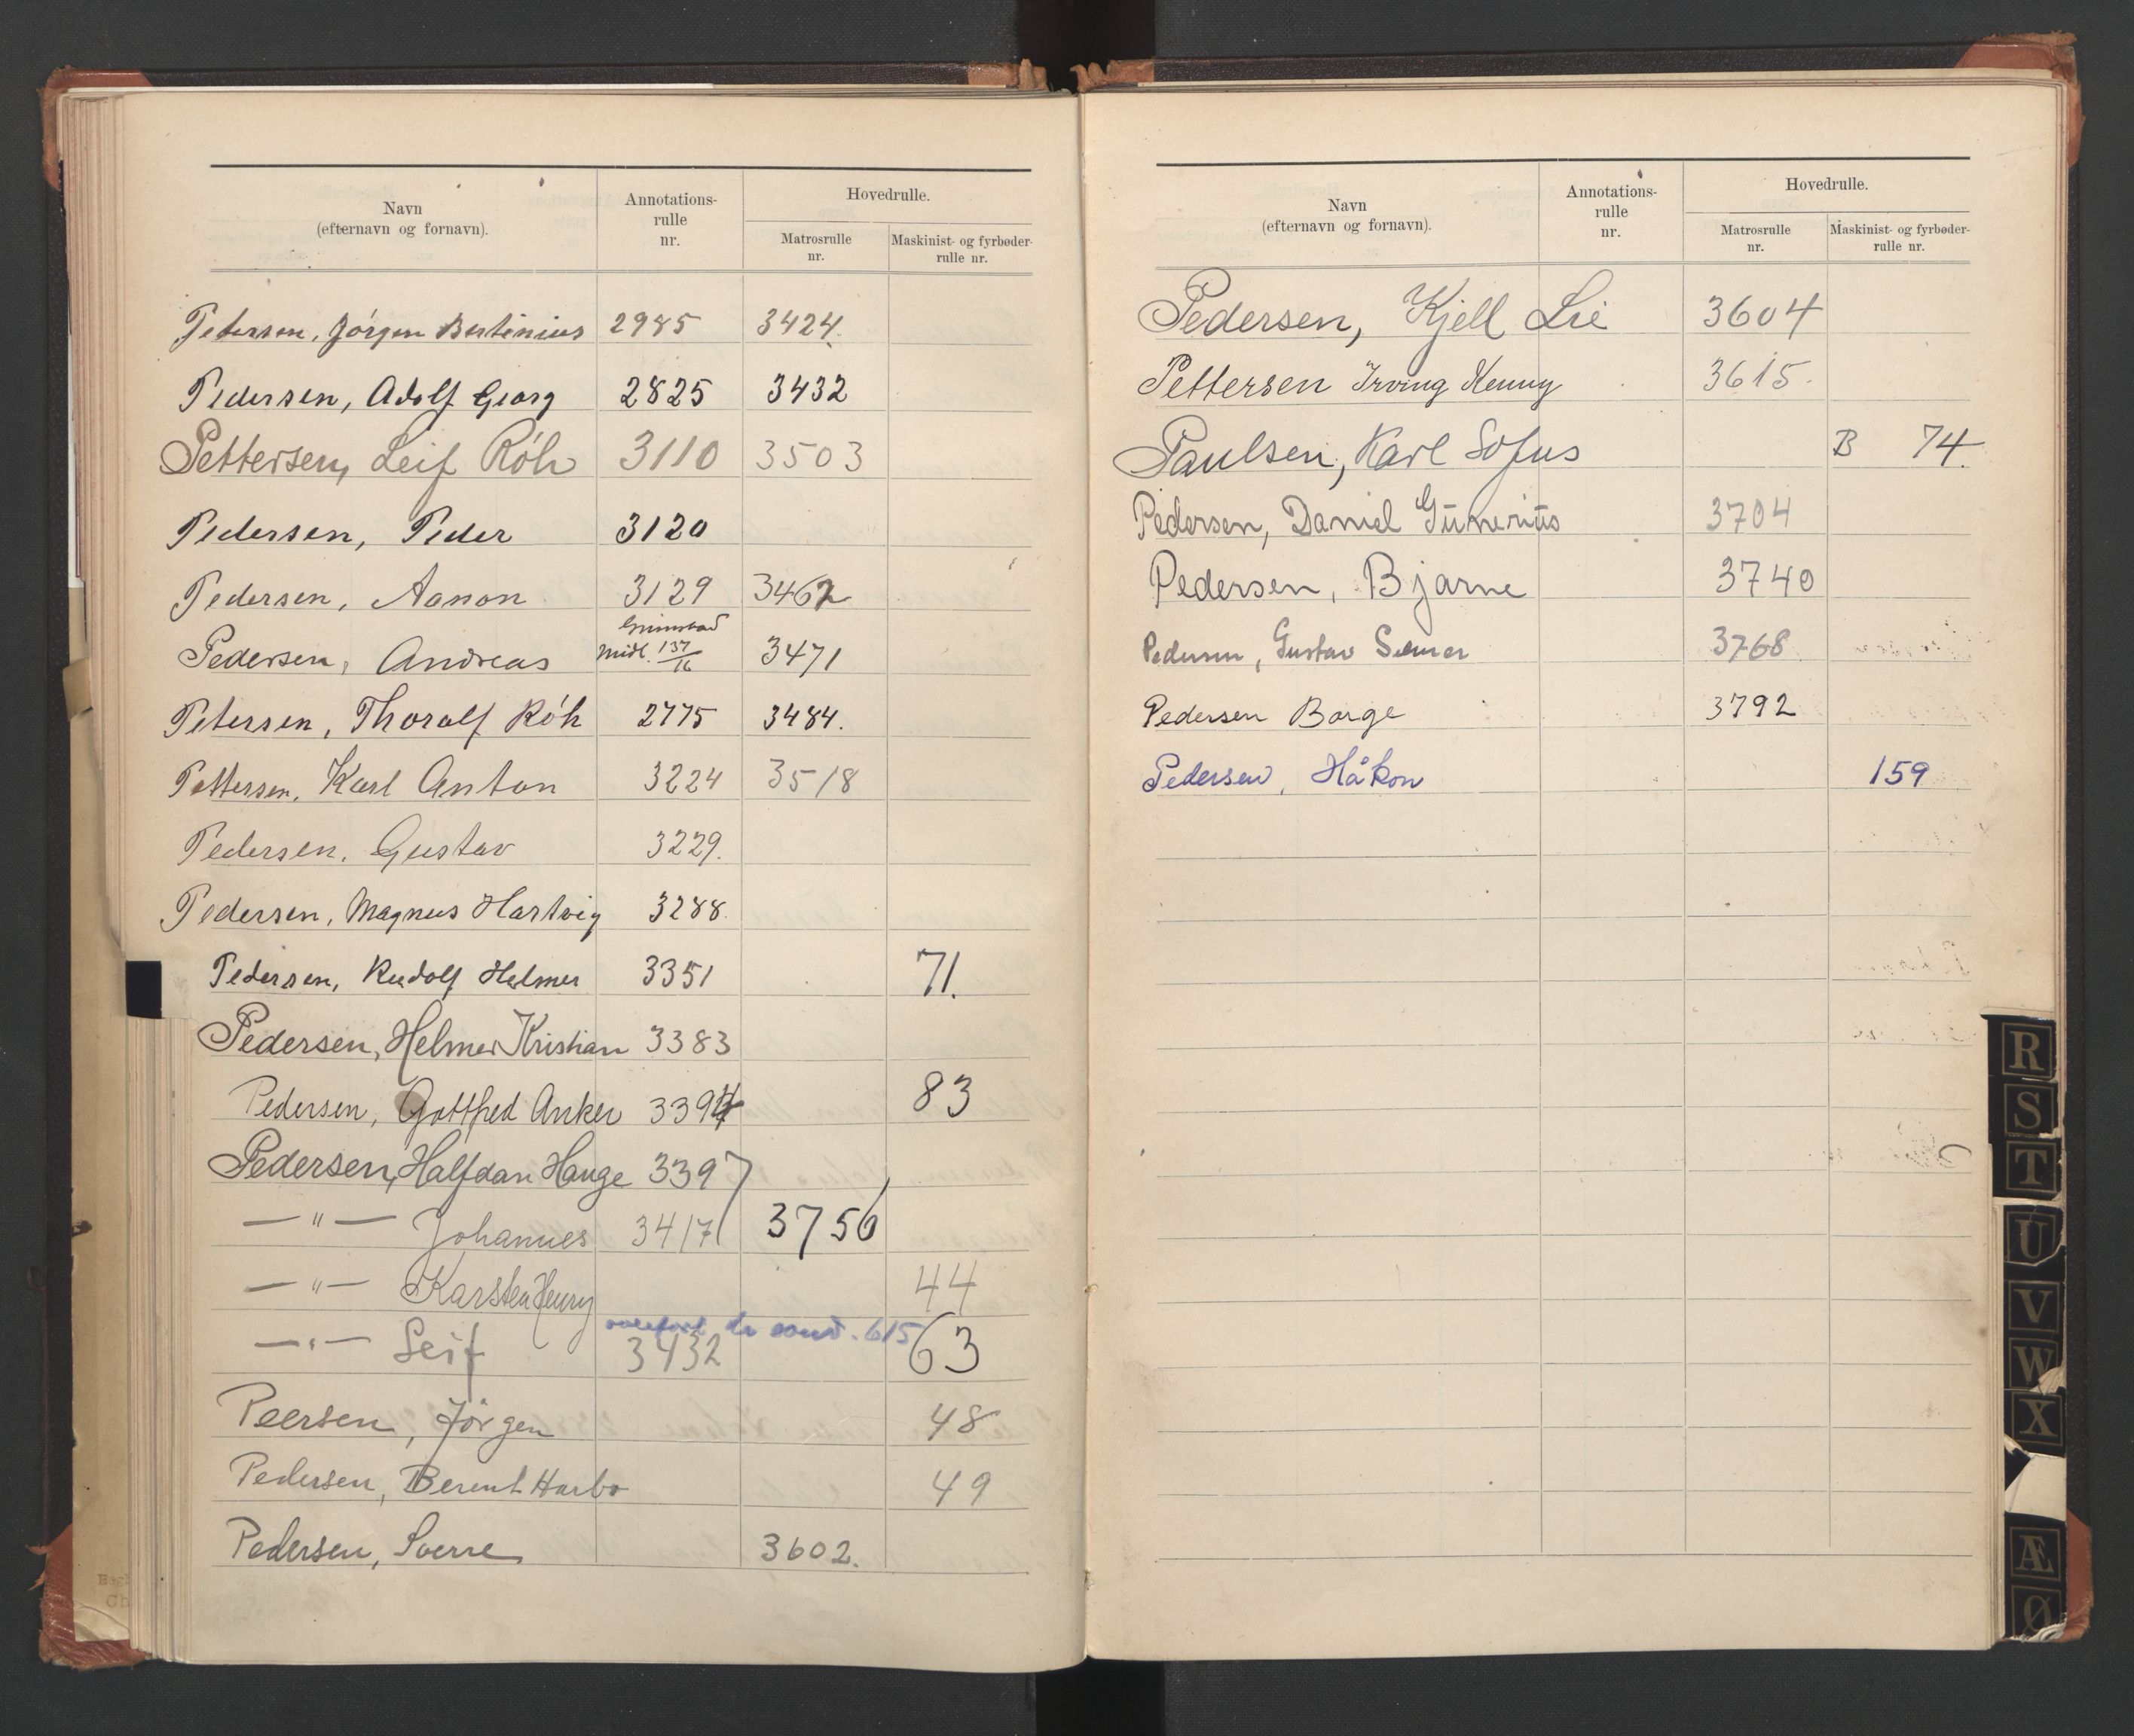 Navn
(efternavn og fornavn).
Annotations-
rulle
nr.
Hovedrulle.
Matrosrulle
nr.
Maskinist- og fyrbøder-
rulle nr.
Petersen, Jörgen Bertinius 2985 3424.
Pedersen, Adolf Georg 2825 3432
Pettersen, Leif Röh 3110 3503
Pedersen, Peder 3120
Pedersen, Aanon 3129 3462
Pedersen, Andreas Grimstad Midl. 137/16 3471
Petersen, Thoralf Röh 2775 3484.
Pettersen, Karl Anton 3224 3518
Pedersen, Gustav 3229.
Pedersen, Magnus Hartvig 3288.
Pedersen, Rudolf Helmer 3351 71.
Pedersen, Helmer Kristian 3383
Pedersen, Gottfred Anker 3394 83
Pedersen, Halfdan Hauge 3397
— " — Johannes 3417 3756
— " — Karsten Henry 44
615
— " — Leif 3432 63
Peersen, Jörgen 48
Pedersen, Berent Harbo 49
Pedersen, Sverre 3602.
Navn
(efternavn og fornavn).
Annotations-
rulle
nr.
Hovedrulle.
Matrosrulle
nr.
Maskinist- og fyrbøder-
rulle nr.
Pedersen, Kjell Lie 3604
Pettersen Irving Kenny 3615.
Paulsen, Karl Sofus B 74.
Pedersen, Daniel Gunerius 3704
Pedersen, Bjarne 3740
Pedersen, Gustav 3768
Pedersen Borge 3792
Pedersen, Håkon 159
R
S
T
U
V
W
X
Æ
Ø